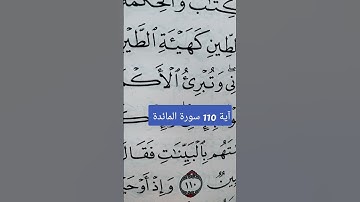 كِتَٰبَ وَٱلْحِكْمَةَ
ٱلطِّينِ كَهَيْـَٔةِ ٱلطَّيْرِ
وَتُبْرِئُ ٱلْأَكْمَ
آية 110 سورة المائدة
تَهُم بِٱلْبَيِّنَٰتِ فَقَالَ
ينٌ ١١٠ وَإِذْ أَوْحَيْ